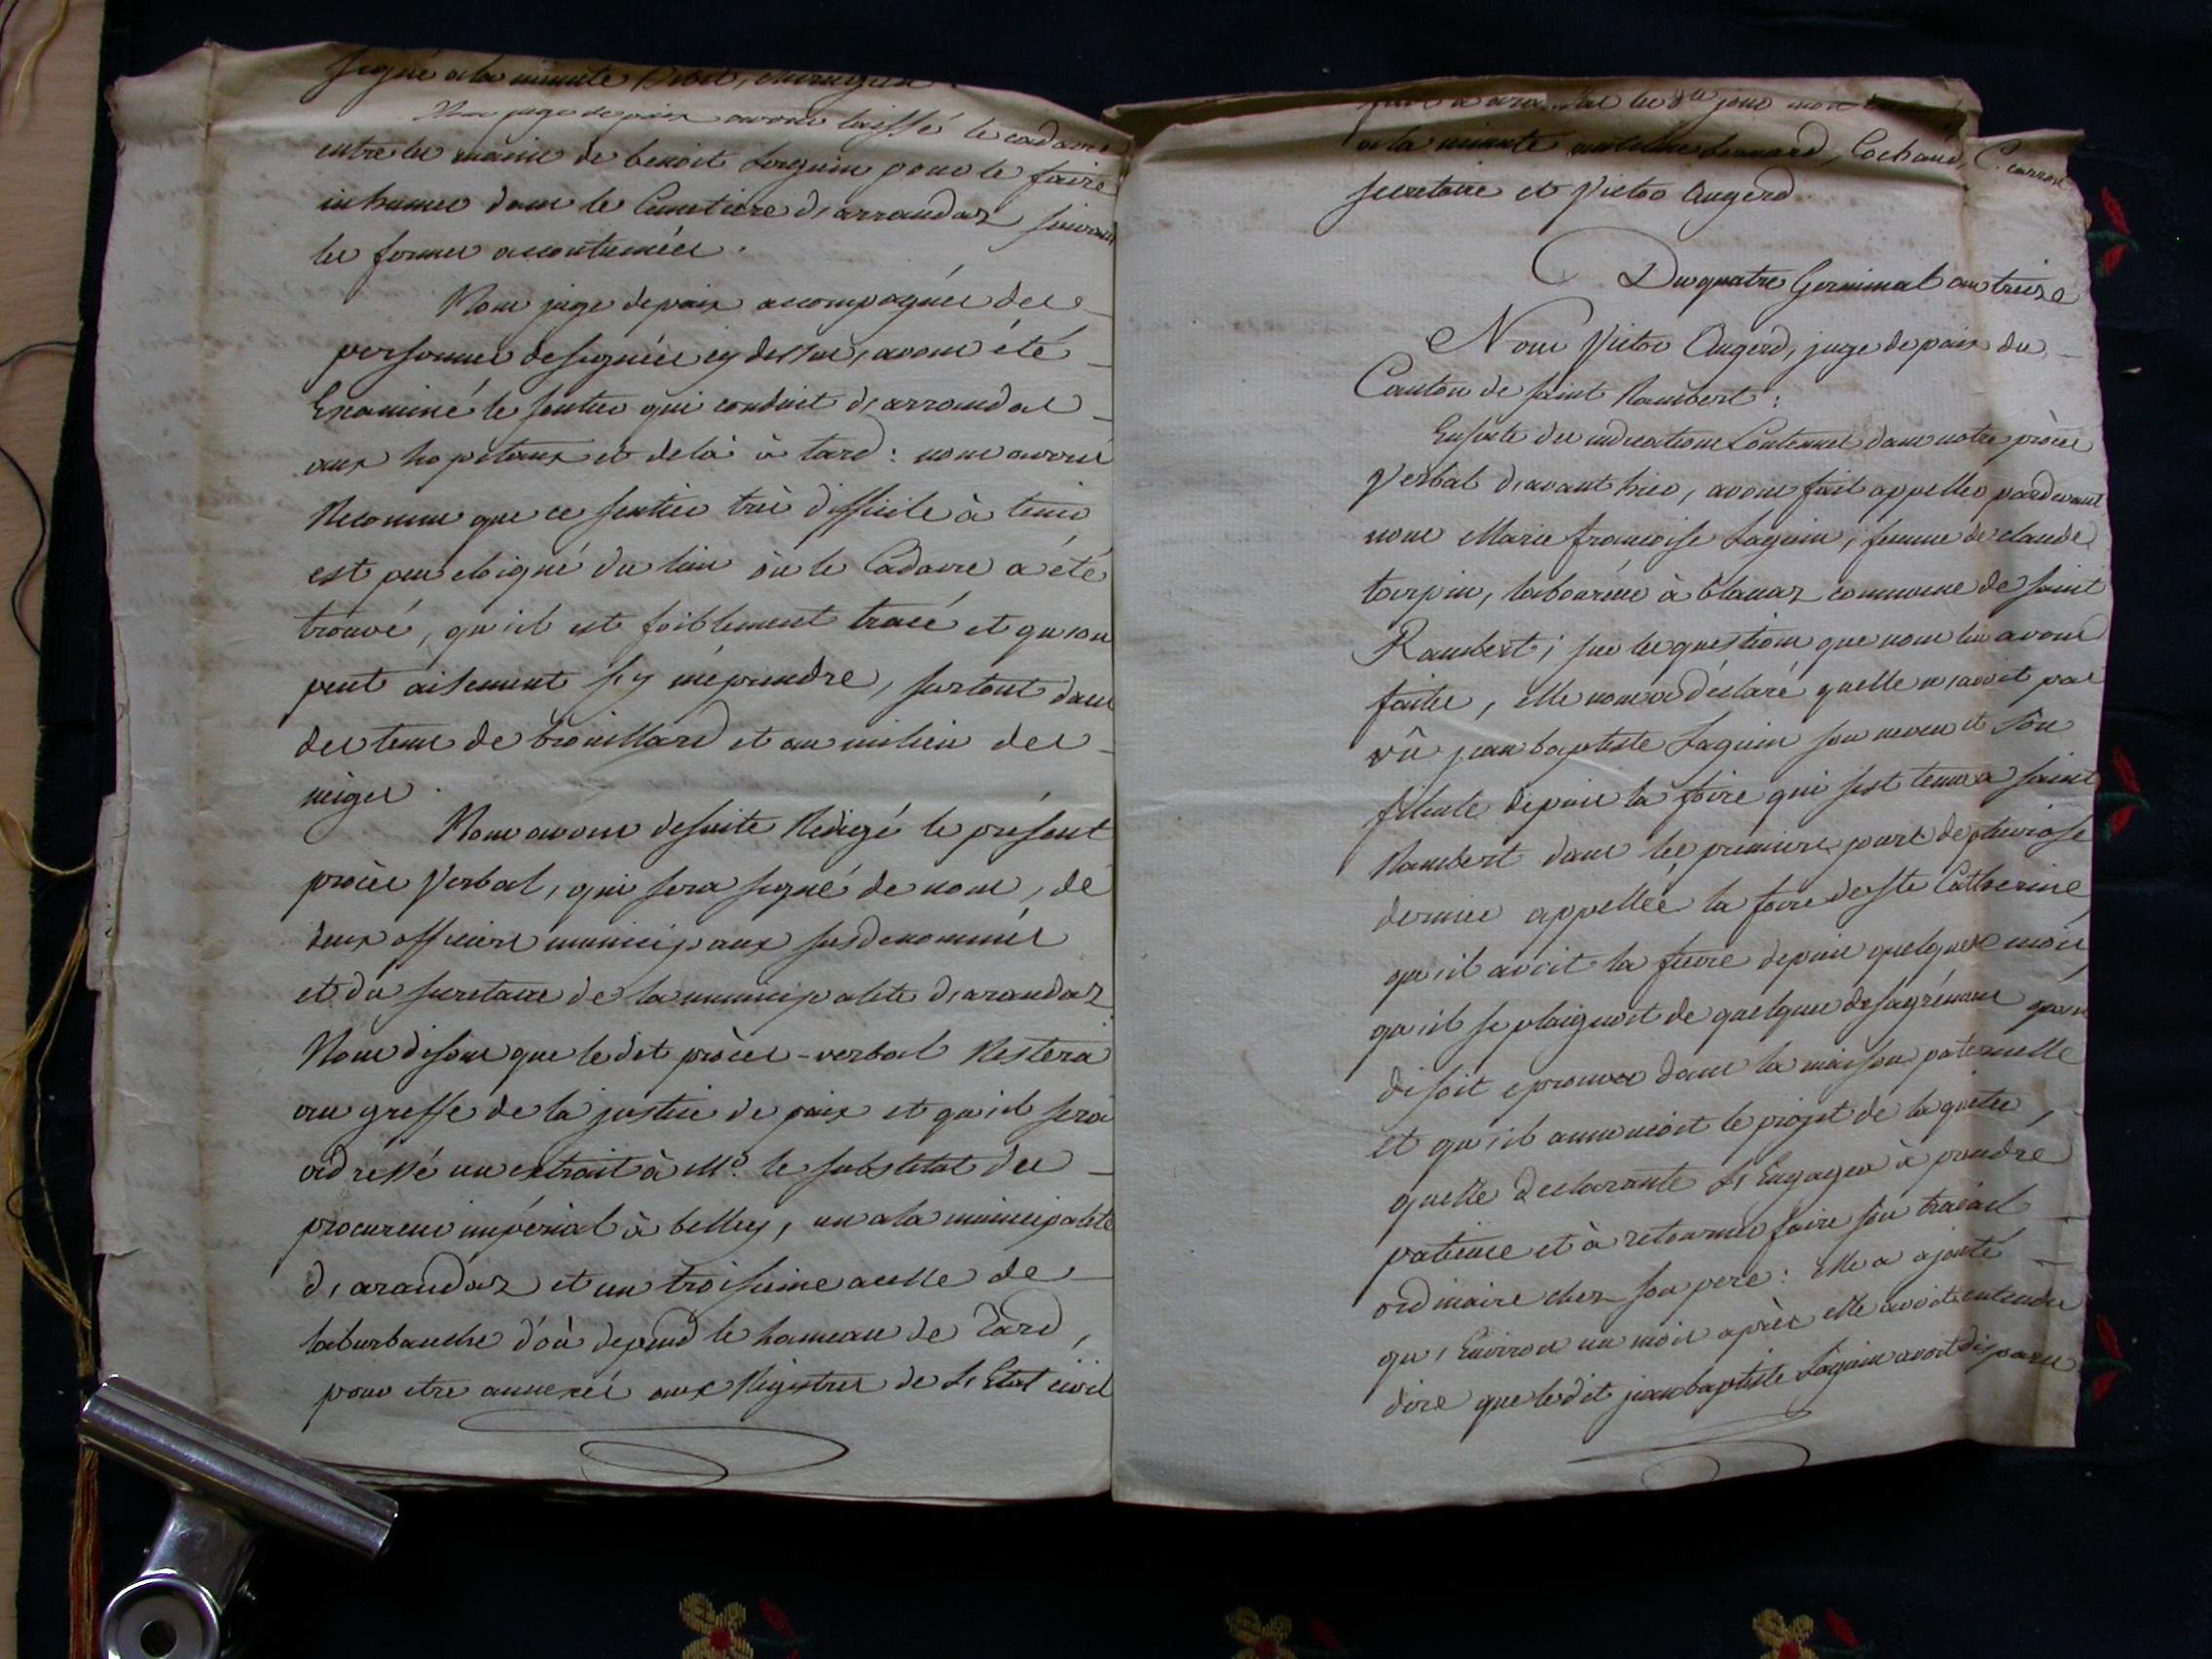 signé a la minute chirurgien.
Nous juge de paix avons laissé le cadavre
entre les mains de benoit Laguin pour le faire
inhumer dans le Cimetiere d'arrandaz suivant
les formes accoutumées.
Nous juge de paix accompagnés des
personnes designées cy dessus, avons été
Examiné le sentier qui conduit d'arrandas
aux hopitaux et delà à tard : nous avons
Reconnu que ce sentier très difficile à tenir
est peu eloigné du lieu où le Cadavre a été
trouvé, qu'il est foiblement tracé et qu'on
peut aisement s'y méprendre, surtout dans
des tems de brouillard et au milieu des
neiges.
Nous avons desuite Redigé le présent
procès Verbal, qui sera signé de nous, de
deux officiers municipaux susdenommés
et du secretaire de la municipalité d'arandaz
Nous disons que le dit procès-verbal Restera
au greffe de la justice de paix et qu'il sera
adressé un extrait à Mr. le substitut du
procureur impérial à belley, un a la municipalité
d'arandaz et un troisieme a celle de
laburbanche d'où depend le hameau de Tard,
pour etre annexés aux Registres de L'Etat civil
fait a les dits jour
a la minute antelme bernard, Cochand, C. carron
secretaire et Victor Augerd
Du quatre Germinal an treize
Nous Victor Augerd, juge de paix du
Canton de saint Rambert :
Ensuite des indications Contenues dans notre procès
Verbal d'avant hier, avons fait appeller pardevant
nous Marie françoise Laguin, femme de claude
torpin, laboureur à blanaz commune de saint
Rambert; sur les questions que nous lui avons
faites, elle nous a déclaré quelle n'avoit pas
vû jean baptiste Laguin son neveu et son
filleule depuis la foire qui s'est tenue a saint
Rambert dans les premiers jours de pluviose
dernier appellée la foire de Ste Catherine,
qu'il avoit la fievre depuis quelques mois,
qu'il se plaignoit de quelques désagrémens qu'il
disoit eprouver dans la maison paternelle
et qu'il annonçoit le projet de la quitter,
quelle declarante L'Engagea à prendre
patience et à retourner faire son travail
ordinaire chez son pere : elle a ajouté
qu'Environ un mois après elle avoit entendu
dire que le dit jean baptiste Laguin avoit disparu